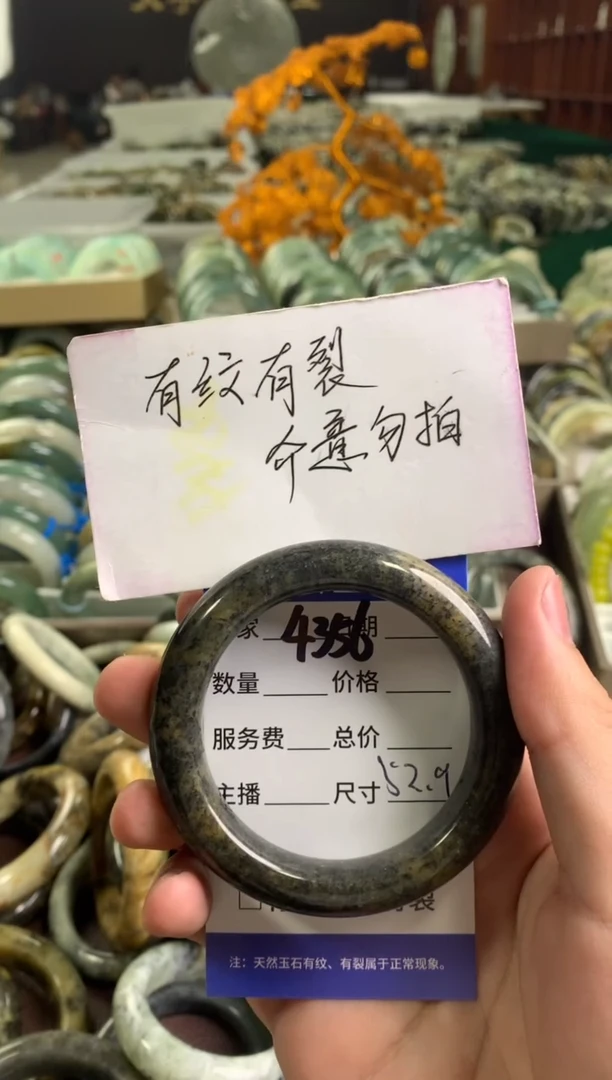 有纹有裂
介意勿拍
家
4356
期
数量 价格
服务费 总价
主播 尺寸 52.9
裂
注：天然玉石有纹、有裂属于正常现象。